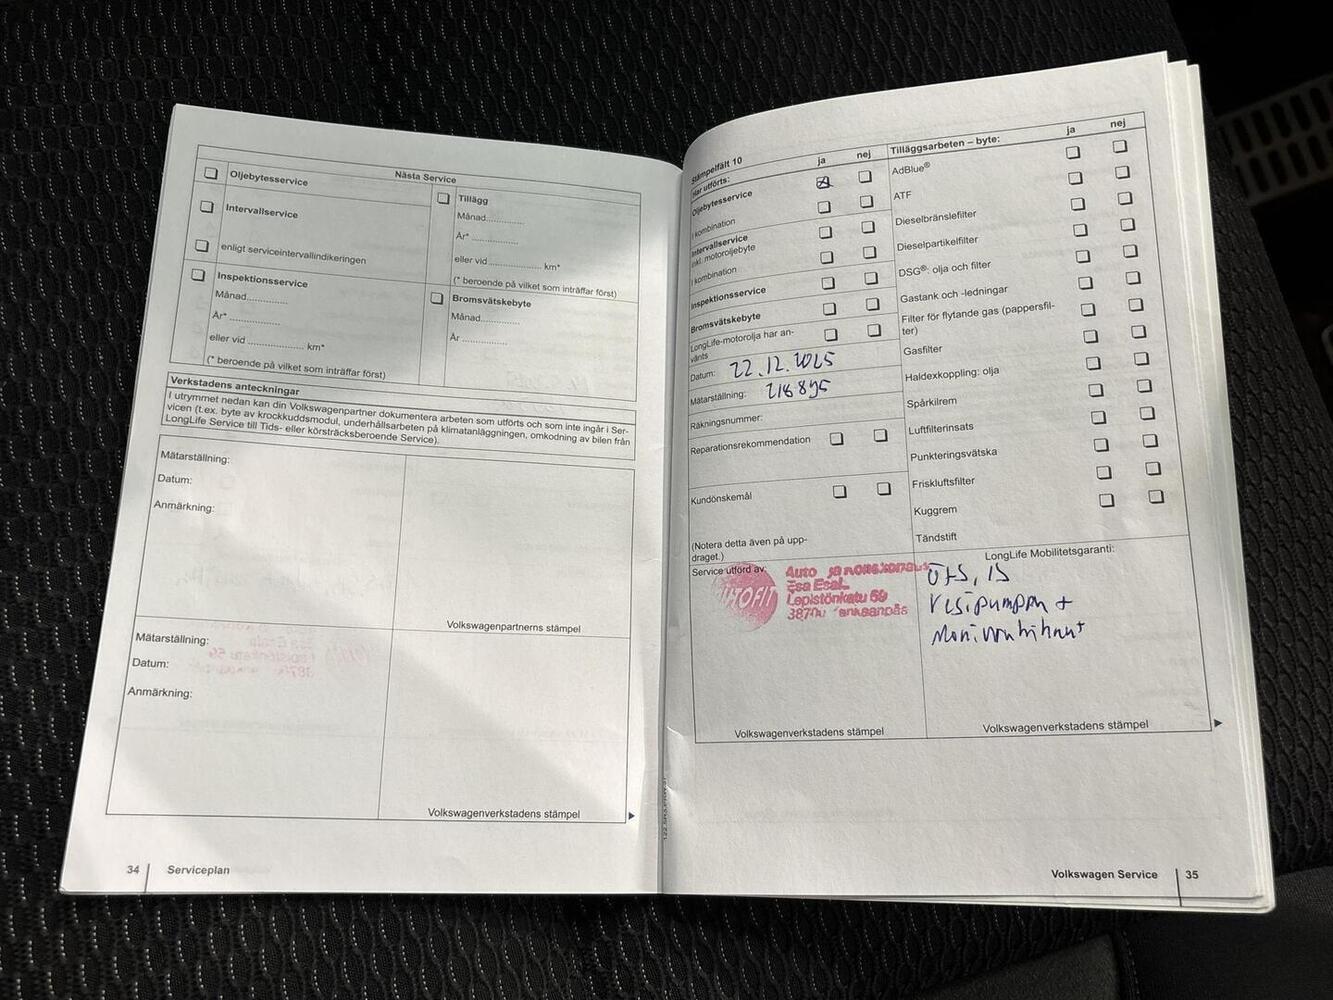 Nästa Service
Oljebytesservice
Intervallservice
enligt serviceintervallindikeringen
Inspektionsservice
Månad..............
År* ..................
eller vid .................... km*
(* beroende på vilket som inträffar först)
Tillägg
Månad..............
År* ..................
eller vid .................... km*
(* beroende på vilket som inträffar först)
Bromsvätskebyte
Månad..............
År ..................
Verkstadens anteckningar
I utrymmet nedan kan din Volkswagenpartner dokumentera arbeten som utförts och som inte ingår i Ser-
vicen (t.ex. byte av krockkuddsmodul, underhållsarbeten på klimatanläggningen, omkodning av bilen från
LongLife Service till Tids- eller körsträcksberoende Service).
Mätarställning:
Datum:
Anmärkning:
Volkswagenpartnerns stämpel
Mätarställning:
Datum:
Anmärkning:
Volkswagenverkstadens stämpel
34 Serviceplan
Stämpelfält 10
Har utförts: ja nej
Oljebytesservice
I kombination
Intervallservice
inkl. motoroljebyte
I kombination
Inspektionsservice
Bromsvätskebyte
LongLife-motorolja har an-
vänts
Datum: 22.12.2025
Mätarställning: 218895
Räkningsnummer:
Reparationsrekommendation
Kundönskemål
(Notera detta även på upp-
draget.)
Service utförd av:
Auto
Esa
Lepistönkatu 59
Volkswagenverkstadens stämpel
Tilläggsarbeten – byte: ja nej
AdBlue®
ATF
Dieselbränslefilter
Dieselpartikelfilter
DSG®: olja och filter
Gastank och -ledningar
Filter för flytande gas (pappersfil-
ter)
Gasfilter
Haldexkoppling: olja
Spårkilrem
Luftfilterinsats
Punkteringsvätska
Friskluftsfilter
Kuggrem
Tändstift
LongLife Mobilitetsgaranti:
Vesipumppu +
Volkswagenverkstadens stämpel
Volkswagen Service 35